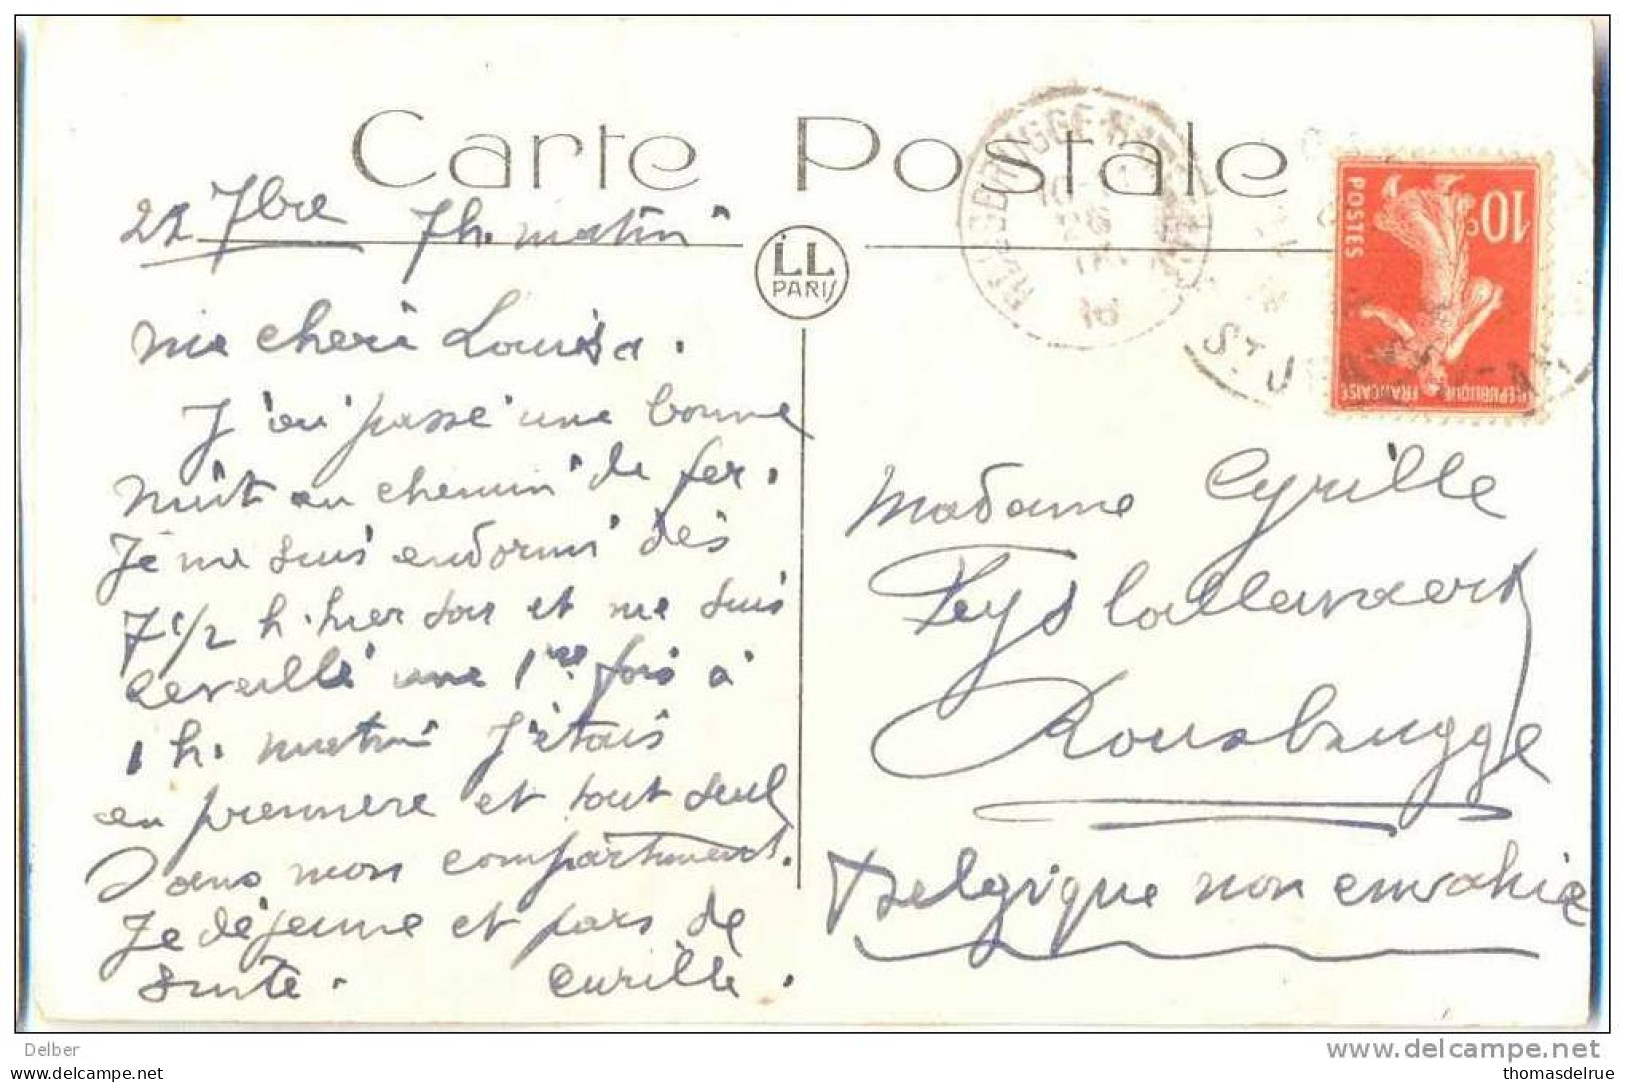 Carte Postale
22 7bre 7h. matin
LL
PARIS
ma cheri Louisa.
J'ai passé une bonne
nuit au chemin de fer.
Je me suis endormi dès
7 1/2 h. hier soir et me suis
reveillé une 1re fois à
1 h. matin J'étais
en premiere et tout seul
dans mon compartiment.
Je déjeune et pars de
suite. Cyrille.
10c
POSTES
REPUBLIQUE FRANCAISE
16
ST J
Madame Cyrille
Feys
Rousbrugge
Belgique non envahie
Delber
www.delcampe.net
thomasdelrue